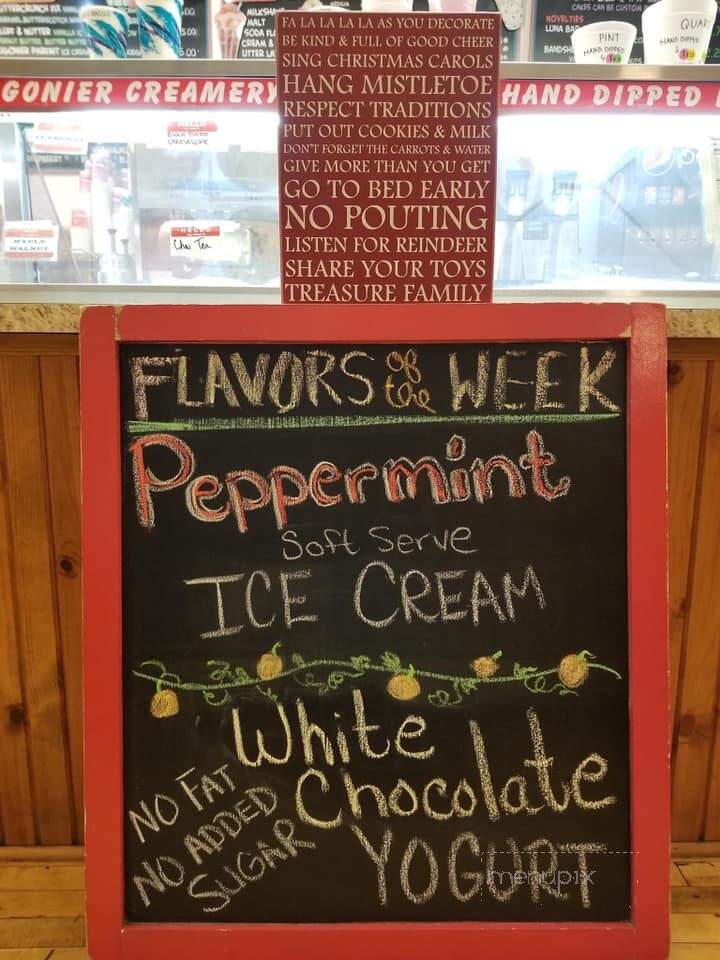 MILKSHAKE
MALT
SODA FL
CREAM &
CAKES CAN BE CUSTOM
NOVELTIES
LUNA BAR
BANDSH
PINT
HAND DIPPED
QUA
HAND DIPPED
GONIER CREAMERY
HAND DIPPED
FA LA LA LA LA AS YOU DECORATE
BE KIND & FULL OF GOOD CHEER
SING CHRISTMAS CAROLS
HANG MISTLETOE
RESPECT TRADITIONS
PUT OUT COOKIES & MILK
DON'T FORGET THE CARROTS & WATER
GIVE MORE THAN YOU GET
GO TO BED EARLY
NO POUTING
LISTEN FOR REINDEER
SHARE YOUR TOYS
TREASURE FAMILY
HELLO
MAPLE
WALNUT
Chai Tea
FLAVORS of the WEEK
Peppermint
Soft Serve
ICE CREAM
White
Chocolate
YOGURT
NO FAT
NO ADDED
SUGAR
menupix